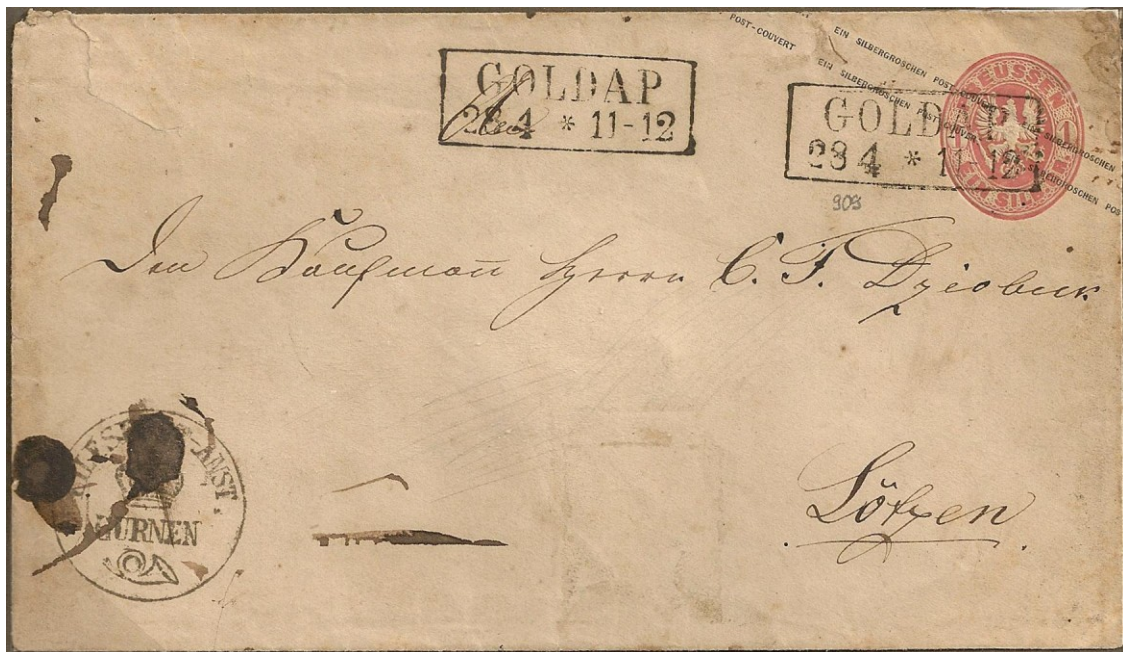 POST-COUVERT
EIN SILBERGROSCHEN POST-COUVERT EIN SILBERGROSCHEN
EIN SILBERGROSCHEN POST-COUVERT EIN SILBERGROSCHEN POS
PREUSSEN
1 1
EIN SILB
GOLDAP
28 4 * 11-12
GOLDAP
28 4 * 11-12
909
Den Kaufmann Herrn C. F. Dziobeck
Lötzen
ANST.
GURNEN